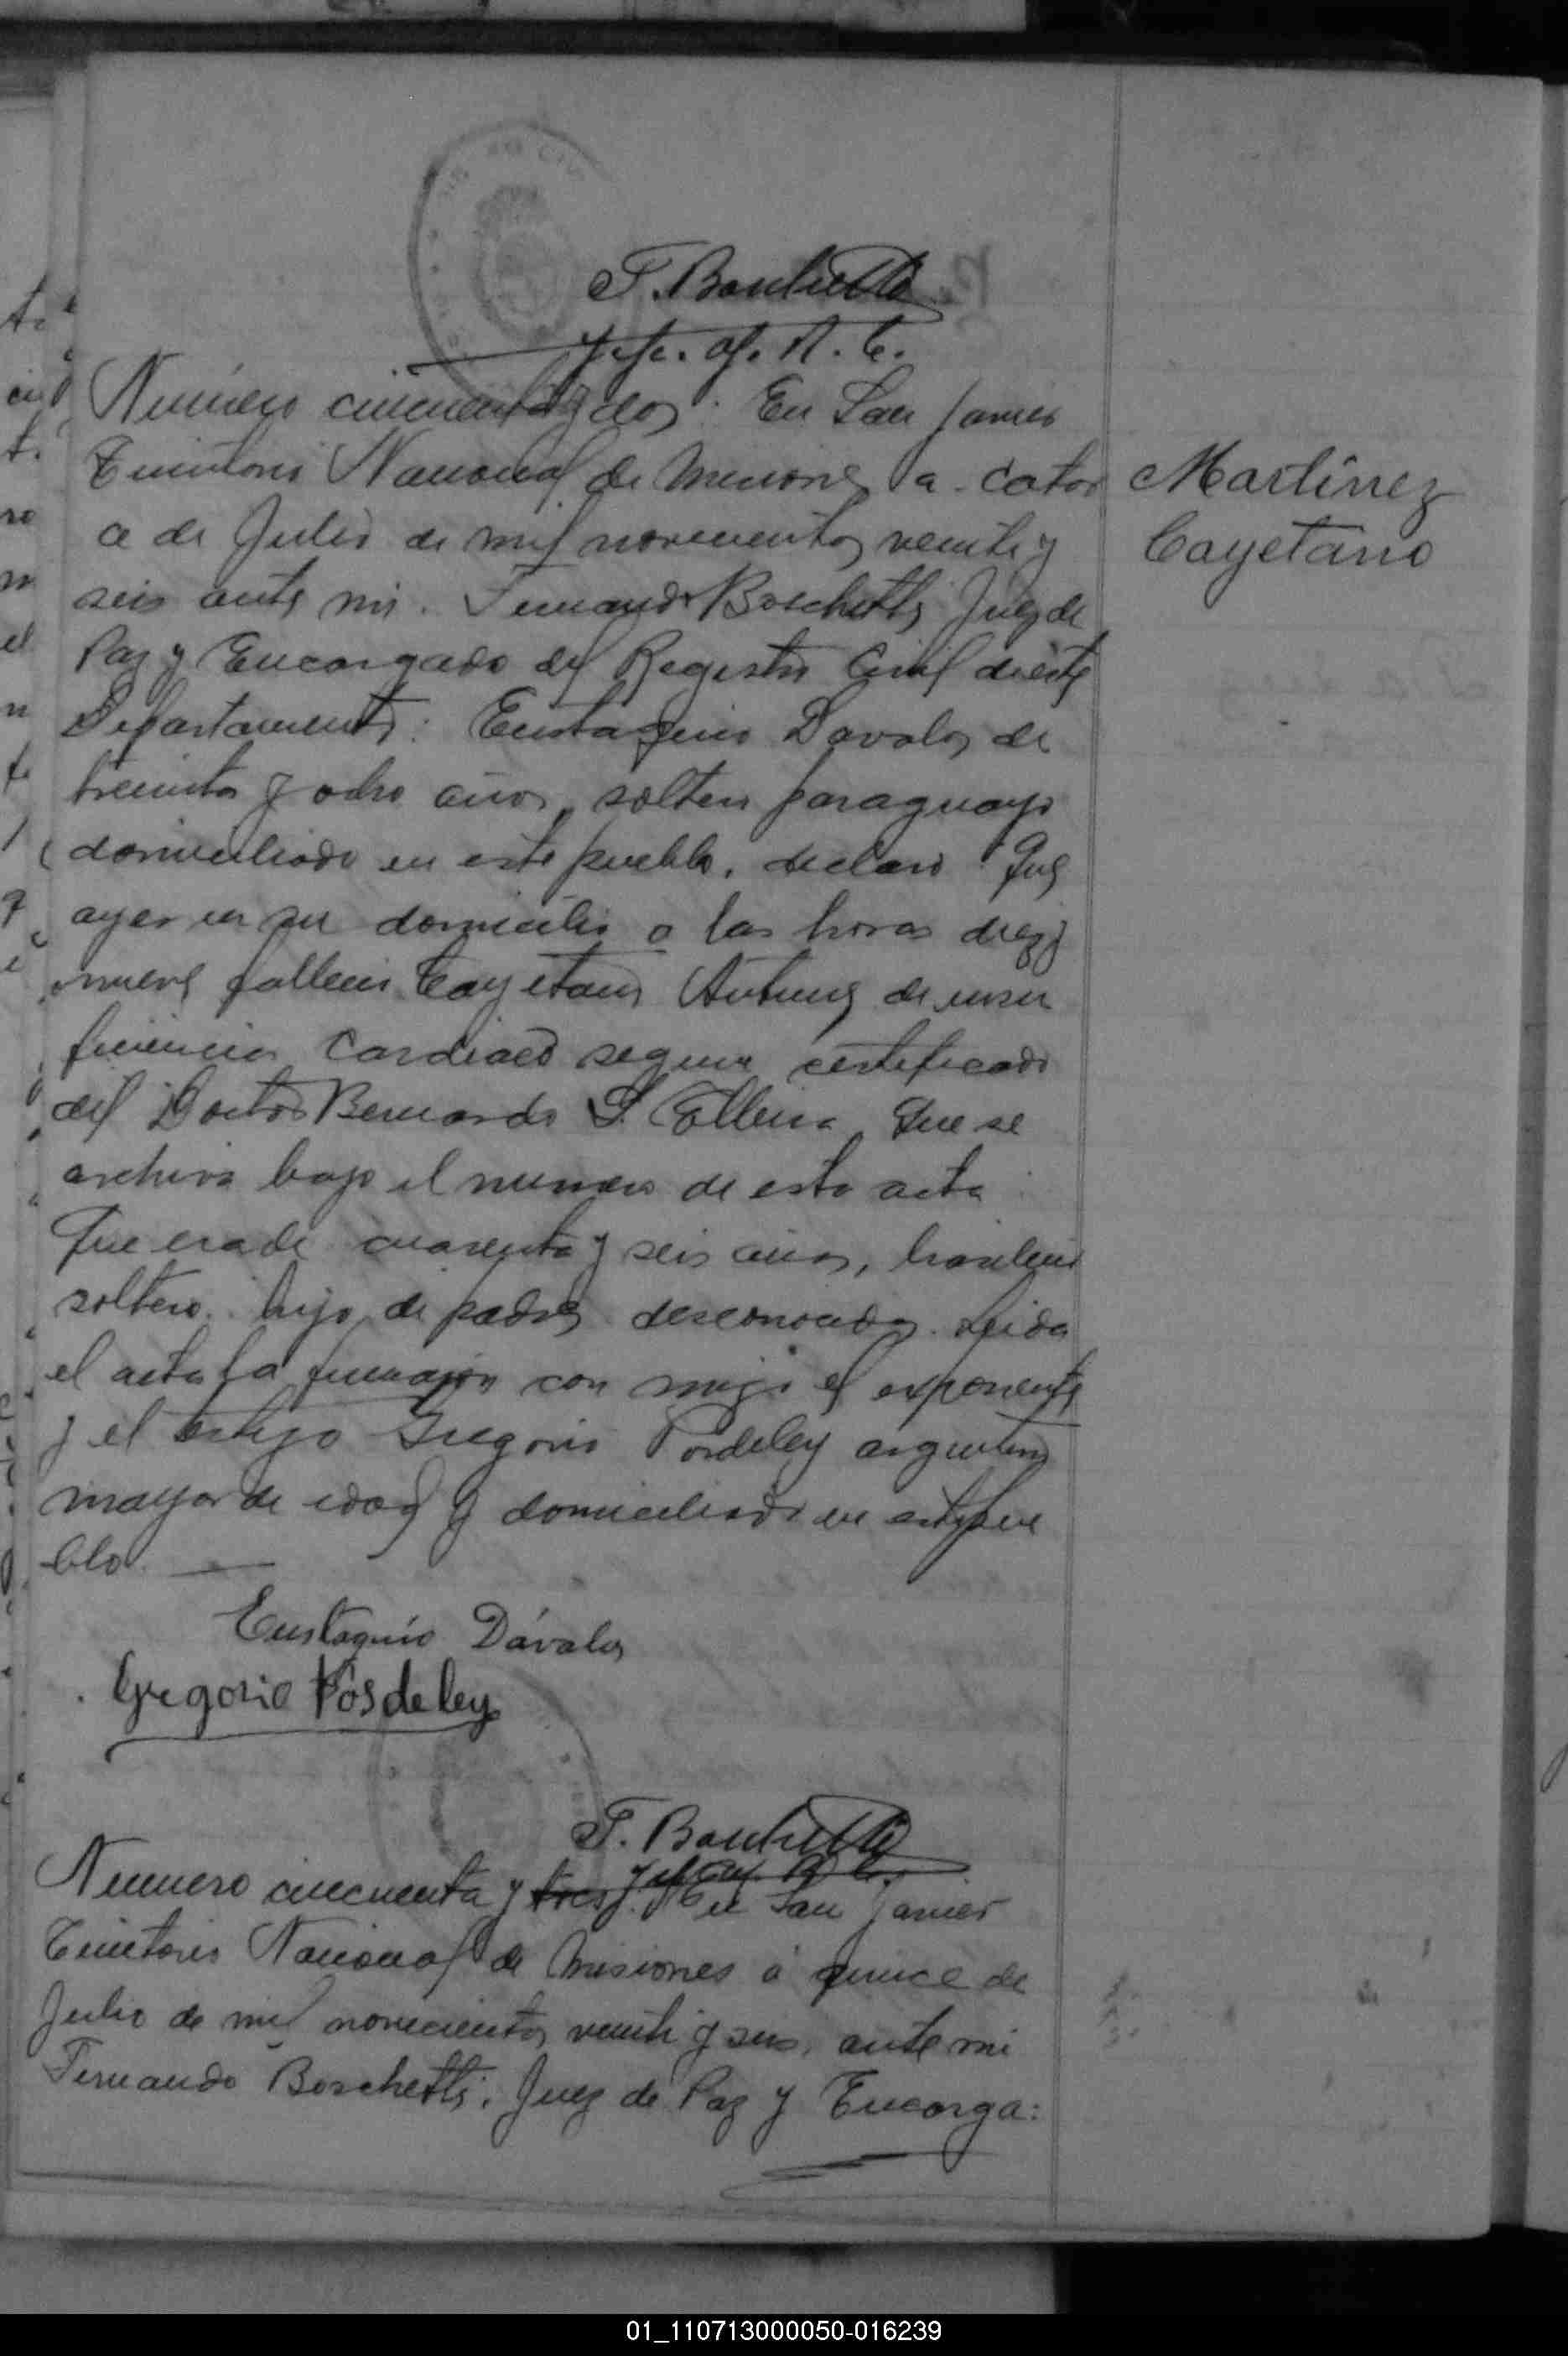 F. Boschetti
Jefe. of. R. C.
Número cincuenta y dos: En San Javier
Territorio Nacional de Misiones a cator
ce de Julio de mil novecientos veinte y
seis ante mi. Fernando Boschetti Juez de
Paz y Encargado del Registro Civil de este
Departamento: Eustaquio Davalos de
treinta y ocho años, soltero paraguayo
domiciliado en este pueblo, declaró: Que
ayer en su domicilio a las horas diez y
nueve falleció Cayetano de insu
ficiencia cardiaca segun certificado
del Doctor Bernardo que se
archiva bajo el numero de esta acta
Que era de cuarenta y seis años, brasilero
soltero. hijo de padres desconocidos. Leida
el acta la firmaron con migo el exponente
y el testigo Gregorio Posdeley argentino
mayor de edad y domiciliado en este pue
blo.
Martínez
Cayetano
Eustaquio Dávalos
Gregorio Posdeley
F. Boschetti
Numero cincuenta y tres: En San Javier
Territorio Nacional de Misiones á quince de
Julio de mil novecientos veinte y seis, ante mi
Fernando Boschetti, Juez de Paz y Encarga:
01_110713000050-016239